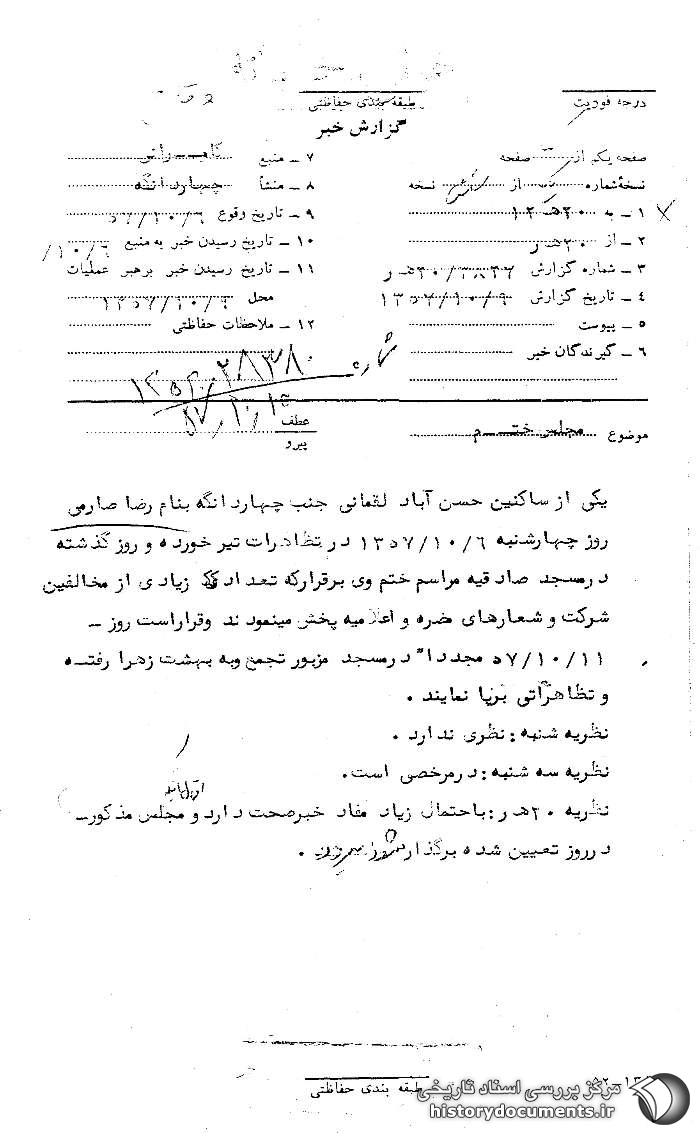 درجه فوریت
طبقه بندی حفاظتی
گزارش خبر
صفحه یکم از صفحه
نسخه شماره از نسخه
۱ ـ به ۲۰ هـ ۱۲
۲ ـ از ۲۰ هـ ر
۳ ـ شماره گزارش ۲۰/۳۸۳۶ هـ ر
۴ ـ تاریخ گزارش ۱۳۵۷/۱۰/۹
۵ ـ پیوست
۶ ـ گیرندگان خبر
۷ ـ منبع
۸ ـ منشأ چهاردانگه
۹ ـ تاریخ وقوع ۵۷/۱۰/۶
۱۰ ـ تاریخ رسیدن خبر به منبع ۱۰/۶/
۱۱ ـ تاریخ رسیدن خبر برهبر عملیات
محل ۱۳۵۷/۱۰/
۱۲ ـ ملاحظات حفاظتی
عطف
پیرو
موضوع مجلس ختم
یکی از ساکنین حسن آباد لقمانی جنب چهاردانگه بنام رضا صارمی
روز چهارشنبه ۱۳۵۷/۱۰/۶ در تظاهرات تیر خورده و روز گذشته
درمسجد صادقیه مراسم ختم وی برقرارکه تعداد زیادی از مخالفین
شرکت و شعارهای مضره و اعلامیه پخش مینمودند وقراراست روز ـ
۵۷/۱۰/۱۱ مجدداً درمسجد مزبور تجمع وبه بهشت زهرا رفته
و تظاهراتی برپا نمایند .
نظریه شنبه : نظری ندارد .
نظریه سه شنبه : درمرخصی است.
نظریه ۲۰ هـ ر : باحتمال زیاد مفاد خبرصحت دارد و مجلس مذکور ـ
درروز تعیین شده برگذار .
طبقه بندی حفاظتی
مرکز بررسی اسناد تاریخی
historydocuments.ir